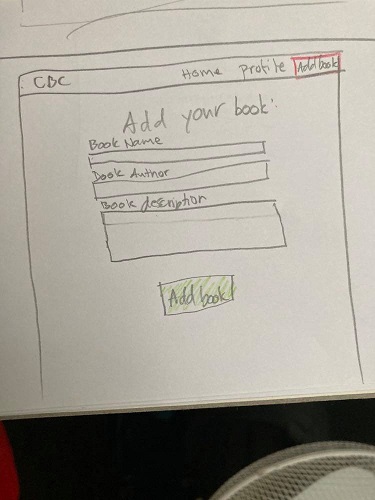 CBC Home Profile Add book
Add your book:
Book Name
Book Author
Book description
Add book